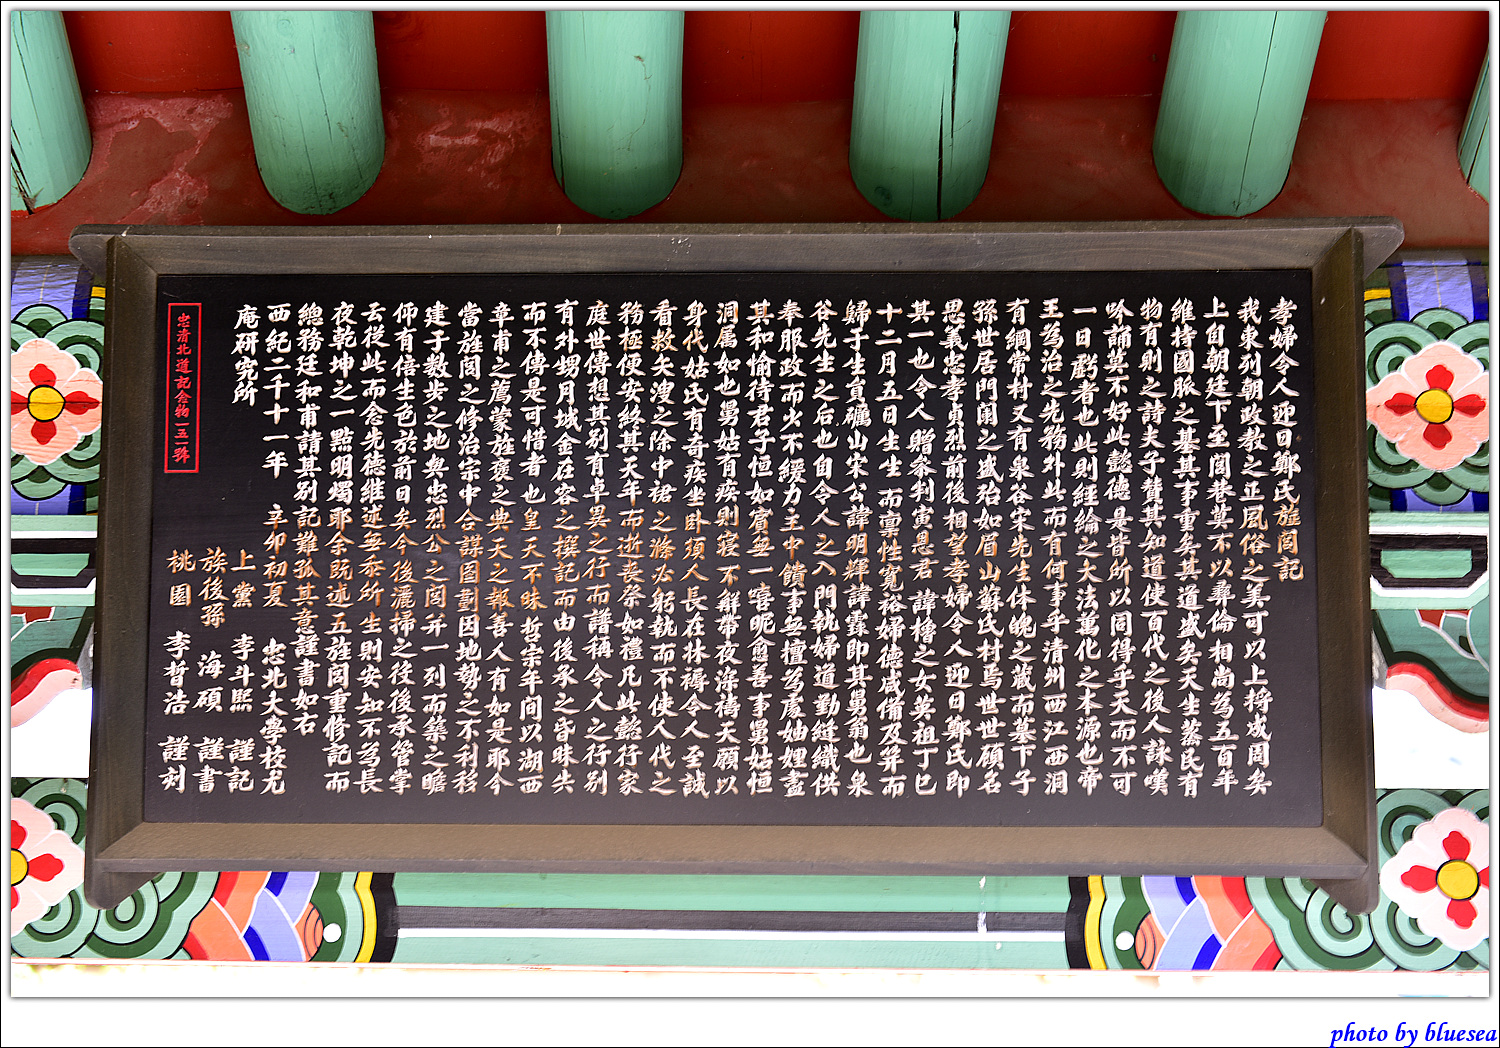 孝婦令人迎日鄭氏旌閭記
我東列朝政教之正風俗之美可以上捋成周矣
上自朝廷下至閭巷莫不以彛倫相尚為五百年
維持國脈之基其事重矣其道盛矣天生蒸民有
物有則之詩夫子贊其知道使百代之後人詠嘆
吟誦莫不好此懿德是皆所以同得乎天而不可
一日虧者也此則經綸之大法萬化之本源也帝
王為治之先務外此而有何事乎清州西江西洞
有綱常村又有泉谷宋先生体魄之藏而墓下子
孫世居門闌之盛殆如眉山蘇氏村焉世世碩名
思義忠孝貞烈前後相望孝婦令人迎日鄭氏即
其一也令人贈參判寅恩君諱櫓之女英祖丁巳
十二月五日生生而禀性寬裕婦德咸備及笄而
歸于生員礪山宋公諱明輝諱霖即其舅翁也泉
谷先生之后也自令人之入門執婦道勤縫織供
奉服政而少不緩力主中饋事無擅為處妯娌盡
其和愉待君子恒如賓無一嘻昵愈善事舅姑恒
洞属如也舅姑有疾則寝不解帶夜深禱天願以
身代姑氏有奇疾坐卧須人長在牀褥令人至誠
看救矢溲之除中裙之滌必躬執而不使人代之
務極便安終其天年而逝喪祭如禮凡此懿行家
庭世傳想其别有卓異之行而譜稱令人之行别
有外甥月城金在容之撰記而由後承之昏昧失
而不傳是可惜者也皇天不昧哲宗年間以湖西
章甫之薦蒙旌褒之典天之報善人有如是耶今
當旌閭之修治宗中合謀图劃因地勢之不利移
建于數步之地與忠烈公之閭幷一列而築之瞻
仰有倍生色於前日矣今後灑掃之役後承管掌
云從此而念先德継述無忝所生則安知不為長
夜乾坤之一點明燭耶余旣述五旌閭重修記而
總務廷和甫請其别記難孤其意謹書如右
西紀二千十一年 辛卯初夏 忠北大學校尤
庵研究所
上黨 李斗熙 謹記
族後孫 海碩 謹書
桃園 李晢浩 謹刻
忠清北道記念物一五一號
photo by bluesea